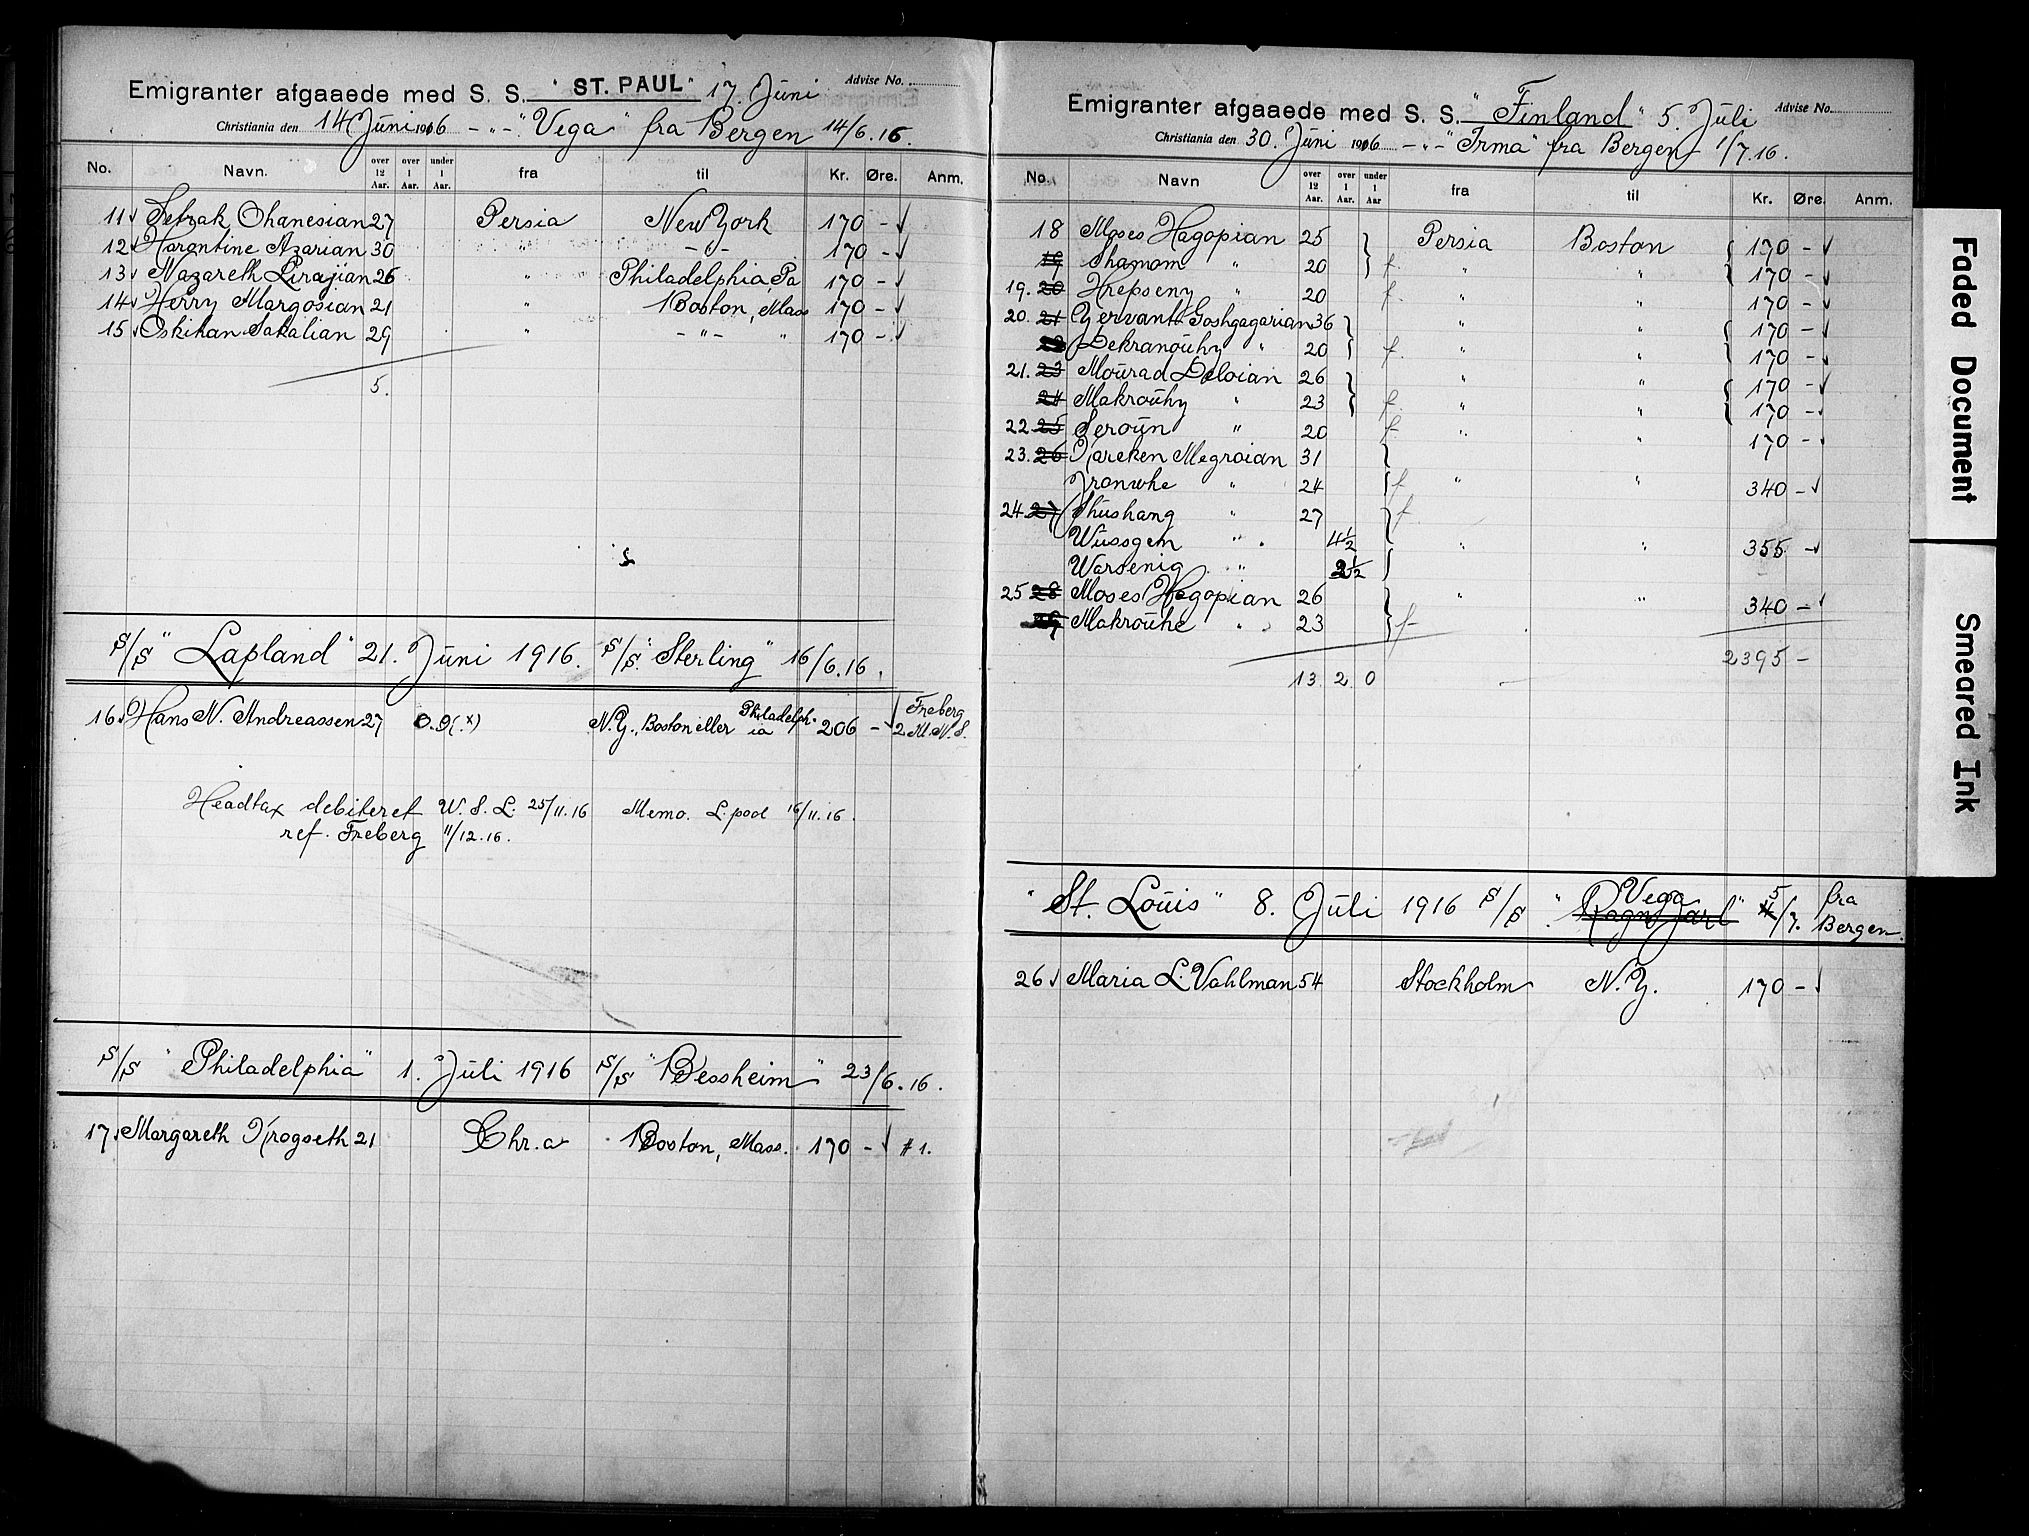 Emigranter afgaaede med S. S. "ST. PAUL" 17. Juni Advise No.
Christiania den 14 Juni 1916 - " - "Vega" fra Bergen 14/6.16.
No. Navn. over 12 Aar. over 1 Aar. under 1 Aar. fra til Kr. Øre. Anm.
11 Setrak Ohanesian 27 Persia New York 170 -
12 Harontine Azarian 30 " - " - 170 -
13 Nazareth Pirajian 26 " Philadelphia, Pa 170 -
14 Herry Margosian 21 " Boston, Mass 170 -
15 Oskihan Sakalian 29 " - " - " 170 -
5.
S/S "Lapland" 21. Juni 1916. S/S. "Sterling" 16/6.16.
16 Hans N. Andreassen 27 O.9(x) N.Y., Boston eller Philadelphia 206 - Freberg 2 Kl. N.S.
Headtax debiteret W.S.L. 25/11.16 Memo. L.pool 16/11.16.
ref. Freberg 11/12.16.
S/S "Philadelphia" 1. Juli 1916 S/S "Bessheim" 23/6.16.
17. Margareth Krogseth 21 Chr.a Boston, Mass. 170 - # 1.
Emigranter afgaaede med S. S. "Finland" 5. Juli Advise No.
Christiania den 30. Juni 1916 - " - "Irma" fra Bergen 1/7.16.
No. Navn over 12 Aar. over 1 Aar. under 1 Aar fra til Kr. Øre. Anm.
18 Moses Hagopian 25 Persia Boston 170 -
19 Shamom " 20 f. " " 170 -
19. 20 Hrepseny " 20 f. " " 170 -
20. 21 Yervant Goshgagarian 36 " " 170 -
22 Dekranouhy " 20 f. " " 170 -
21. 23 Mourad Deloian 26 " " 170 -
24 Makrouhy " 23 f. " " 170 -
22 25 Seroun " 20 f " " 170 -
23. 26 Kareken Megroian 31
Iranwhe " 24 f " " 340 -
24 27 Shushang " 27 f
Wussgen " 4½ " " 355 -
Warsenig " 2½
25 28 Moses Hagopian 26 " " 340 -
29 Makrouhe " 23 f
2395 -
13 2 0
"St. Louis" 8. Juli 1916 S/S "Ragn. Jarl" Vega 4 5/7. fra Bergen.
26 Maria L. Vahlman 54 Stockholm N.Y. 170 -
Faded Document
Smeared Ink